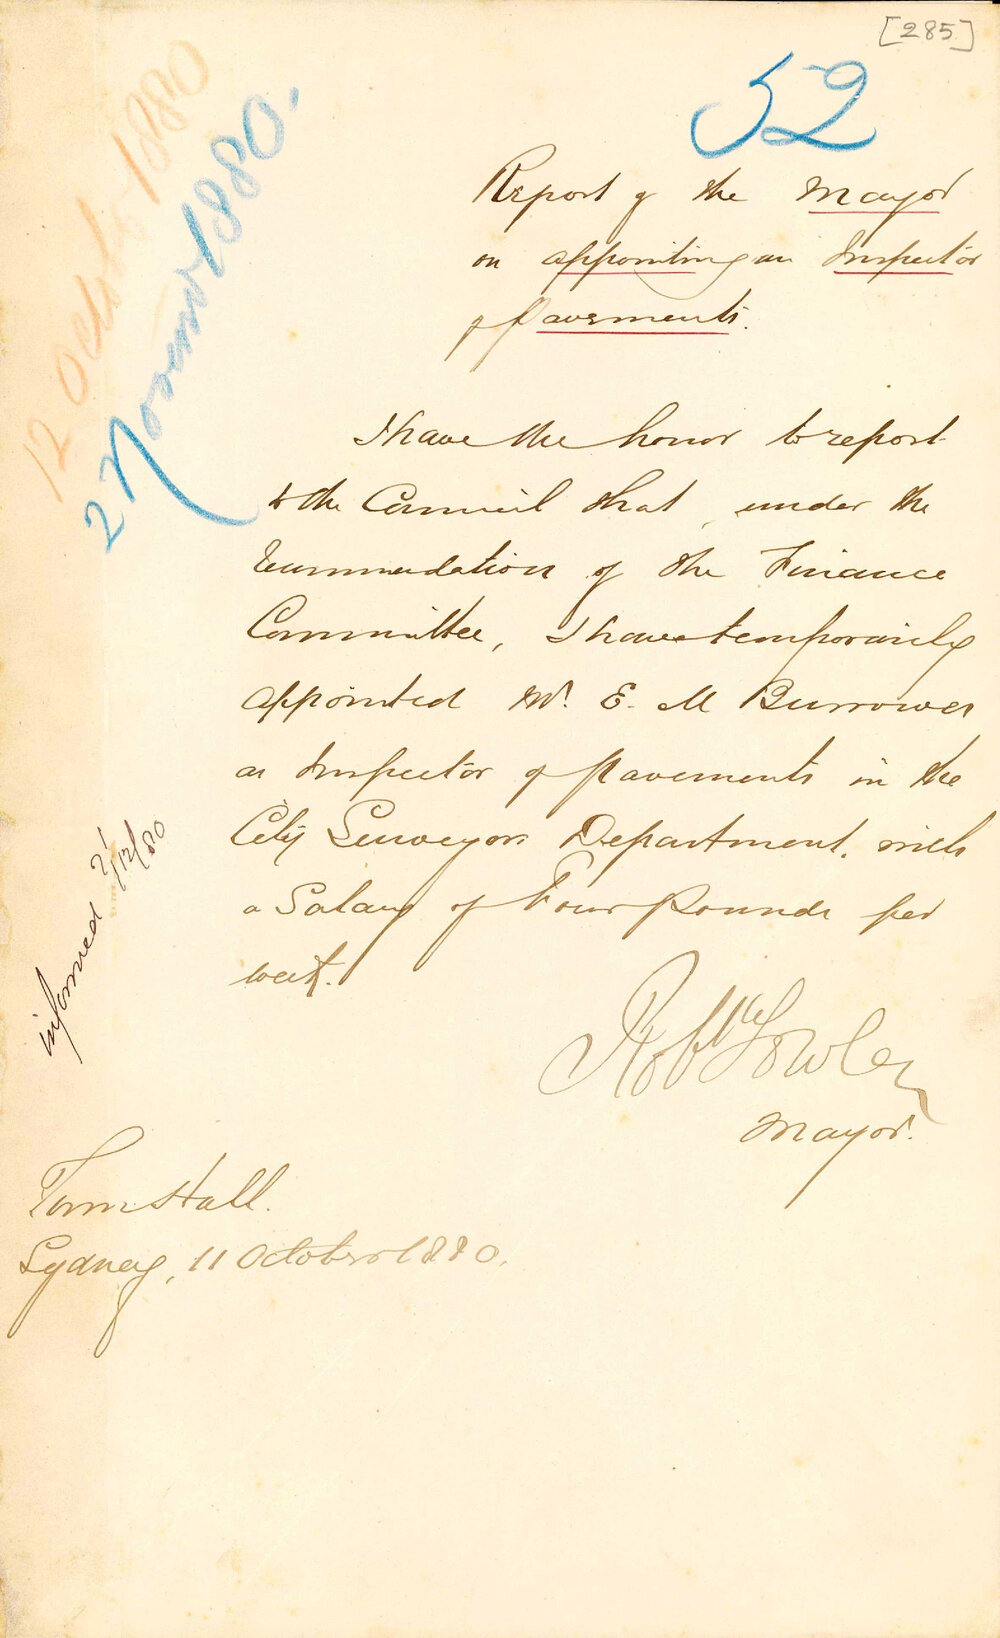 [285]
52
12 October 1880
2 November 1880.
Report of the Mayor
on appointing an Inspector
of Pavements.
I have the honor to report
to the Council that, under the
recommendation of the Finance
Committee, I have temporarily
appointed Mr. E. M Burrowes
as Inspector of pavements in the
City Surveyors Department, with
a Salary of Four Pounds per
week.
Robt Fowler
Mayor.
informed 2/12/80
Town Hall.
Sydney, 11 October 1880.